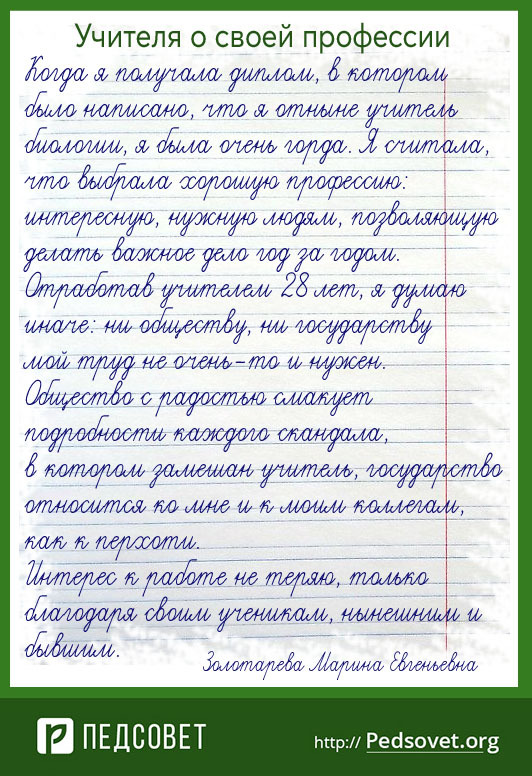 Учителя о своей профессии
Когда я получала диплом, в котором
было написано, что я отныне учитель
биологии, я была очень горда. Я считала,
что выбрала хорошую профессию:
интересную, нужную людям, позволяющую
делать важное дело год за годом.
Отработав учителем 28 лет, я думаю
иначе: ни обществу, ни государству
мой труд не очень-то и нужен.
Общество с радостью смакует
подробности каждого скандала,
в котором замешан учитель, государство
относится ко мне и к моим коллегам,
как к перхоти.
Интерес к работе не теряю, только
благодаря своим ученикам, нынешним и
бывшим.
Золотарева Марина Евгеньевна
ПЕДСОВЕТ
http:// Pedsovet.org